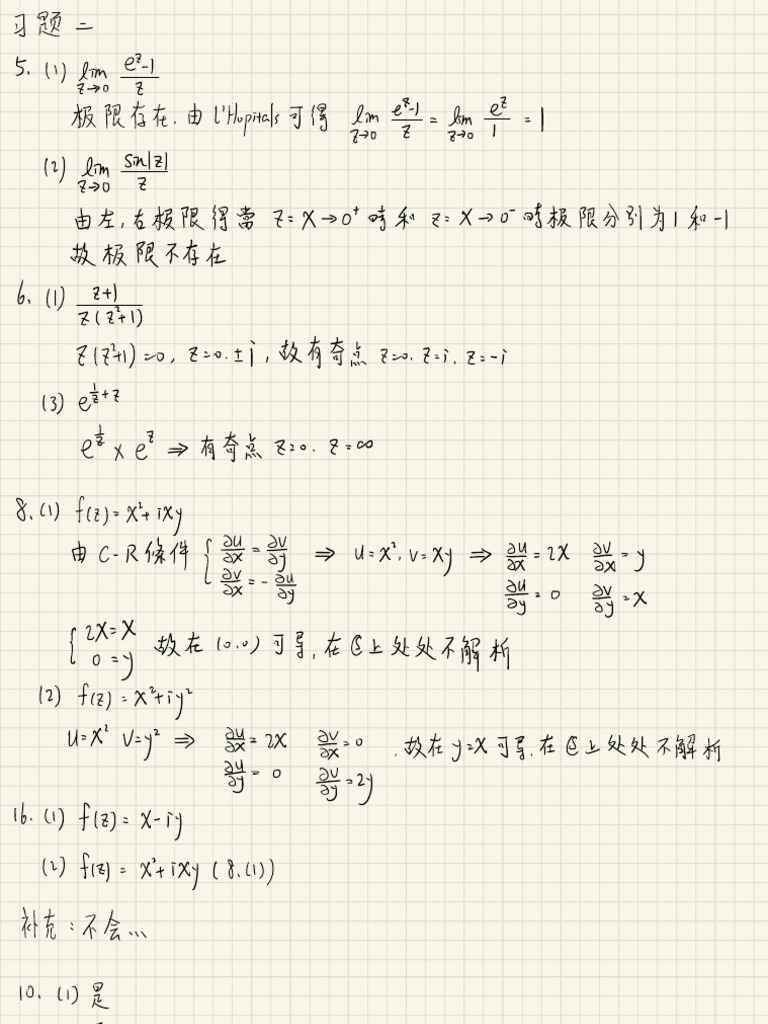 习题二
5. (1) lim_{z→0} (e^z-1)/z
极限存在. 由 l'Hopitals 可得 lim_{z→0} (e^z-1)/z = lim_{z→0} e^z/1 = 1
(2) lim_{z→0} sin|z|/z
由左,右极限得當 z=x→0⁺ 時和 z=x→0⁻ 時极限分别为1和-1
故极限不存在
6. (1) (z+1)/(z(z²+1))
z(z²+1)=0, z=0.±i, 故有奇点 z=0. z=i. z=-i
(3) e^{1/z+z}
e^{1/z} × e^z ⇒ 有奇点 z=0. z=∞
8. (1) f(z)=x²+ixy
由 C-R 條件 { ∂u/∂x=∂v/∂y ⇒ u=x², v=xy ⇒ ∂u/∂x=2x ∂v/∂x=y
∂v/∂x=-∂u/∂y ∂u/∂y=0 ∂v/∂y=x
{ 2x=x 0=y 故在 (0.0) 可导, 在 ℂ 上处处不解析
(2) f(z)=x²+iy²
u=x² v=y² ⇒ ∂u/∂x=2x ∂v/∂x=0 . 故在 y=x 可导. 在 ℂ 上处处不解析
∂u/∂y=0 ∂v/∂y=2y
16. (1) f(z)=x-iy
(2) f(z)=x²+ixy (8.(1))
补充:不会...
10. (1) 是